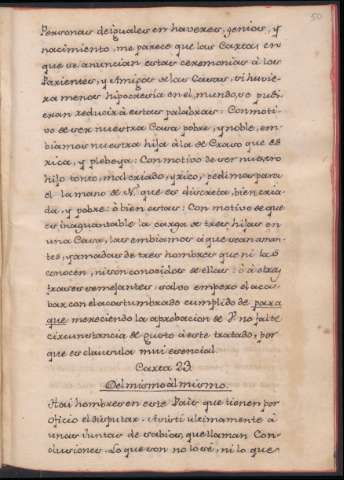 50
Personas desiguales en haveres, genios, y
nacimiento, me parece que las Cartas en
que se anuncian estas ceremonias á los
Parientes, y Amigos de las Casas, si huvie-
ra menos hipocresia en el mundo, se pudi-
eran reducir á estas palabras: Con moti-
vo de ser nuestra Casa pobre, y noble, em-
biamos nuestra hija á la de Craso que es
rica, y plebeya: Con motivo de ser nuestro
hijo tonto, mal criado, y rico, pedimos para
el la mano de N. que es discreta, bien cria-
da, y pobre: ò bien estas: Con motivo de que
es inaguantable la carga de tres hijas en
una Casa, las embiamos á que sean aman-
tes, y amadas de tres hombres que ni las
conocen, ni son conocidos de ellas: ò á otras
frases semejantes, salvo empero el aca-
bar con el acostumbrado cumplido de para
que mereciendo la aprobacion de V. no falte
circunstancia de gusto á este tratado, por
que es clausula mui esencial.
Carta 23.
Del mismo al mismo.
Hai hombres en este Pais que tienen por
oficio el disputar. Asisti ultimamente á
unas Juntas de sabios, que llaman Con-
clusiones. Lo que son no lo sé, ni lo que